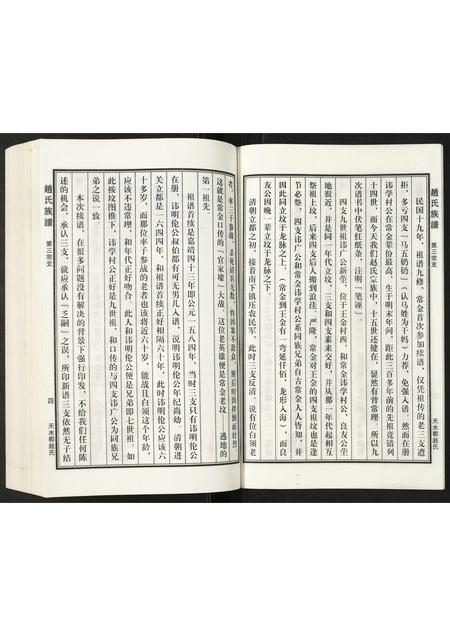 趙氏族譜
第三宗支
民国十九年,祖谱九修,常金首次参加续谱,仅凭祖传的老三支遭
拒,多亏四支「马五奶奶」(认马姓为干妈)力荐,免强入谱,然而在册
讳学村公在常金辈份最高,生于明末年间,距此三百多年前的先祖竟错列
十四世,而今天我们赵氏宗族中,十五世还健在,显然有背常理,所以九
次谱书中伏笔红纸条,注明「笔诬」。
四支九世祖讳广公新茔,位于王金村西,和常金讳学村公,良友公茔
地很近,并是同一年代立坟,三支和四支素来交好,并从那一年代起相互
祭祖上坟,后来四支后人搬到浪洼、严隆,常金对王金的四支祖坟也是逢
节必祭,四支讳广公和常金讳学村公系同族兄弟自古常金人人皆知,并
因此同立坟于龙脉之上,(常金到王金有一弯延仟佰,龙形入海),而良
友公因晚一辈立坟于龙脉之下
清朝立都之初,接着南下镇压农民军,此时三支反清,说有位白须老
者,率三子参战,杀死清兵无数,终因寡不敌众,
这就是常金口传的「官家壕」大战,这位老英雄便是常金老坟,遇地的
第一祖先
祖谱首续是嘉靖四十三年即公元一五八四年,当时三支只有讳明伦公
在册,讳明伦公叔伯都有可无男儿入谱,说明讳明伦公年纪尚幼,清朝进
关立都是一六四四年,和祖谱首续正好相隔六十年,此时讳明伦公应该六
十多岁,而那位率子参战的老者也该将近六十岁,能战且白须这个年龄,
应该不违常理,和年代正好吻合,此人和讳明伦公便是兄弟即七世祖,如
此按坟图推下,讳学村公正好是九世祖,和口传的与四支讳广公为同族兄
弟之说一致
本次续谱,在很多问题没有解决的背景下强行印发,不给我们任何陈
述的机会,承认三支,就应承认「乏嗣」之误,所印新谱三支依然无子结
趙氏族譜
第三宗支
四
天水郡赵氏
天水郡赵氏